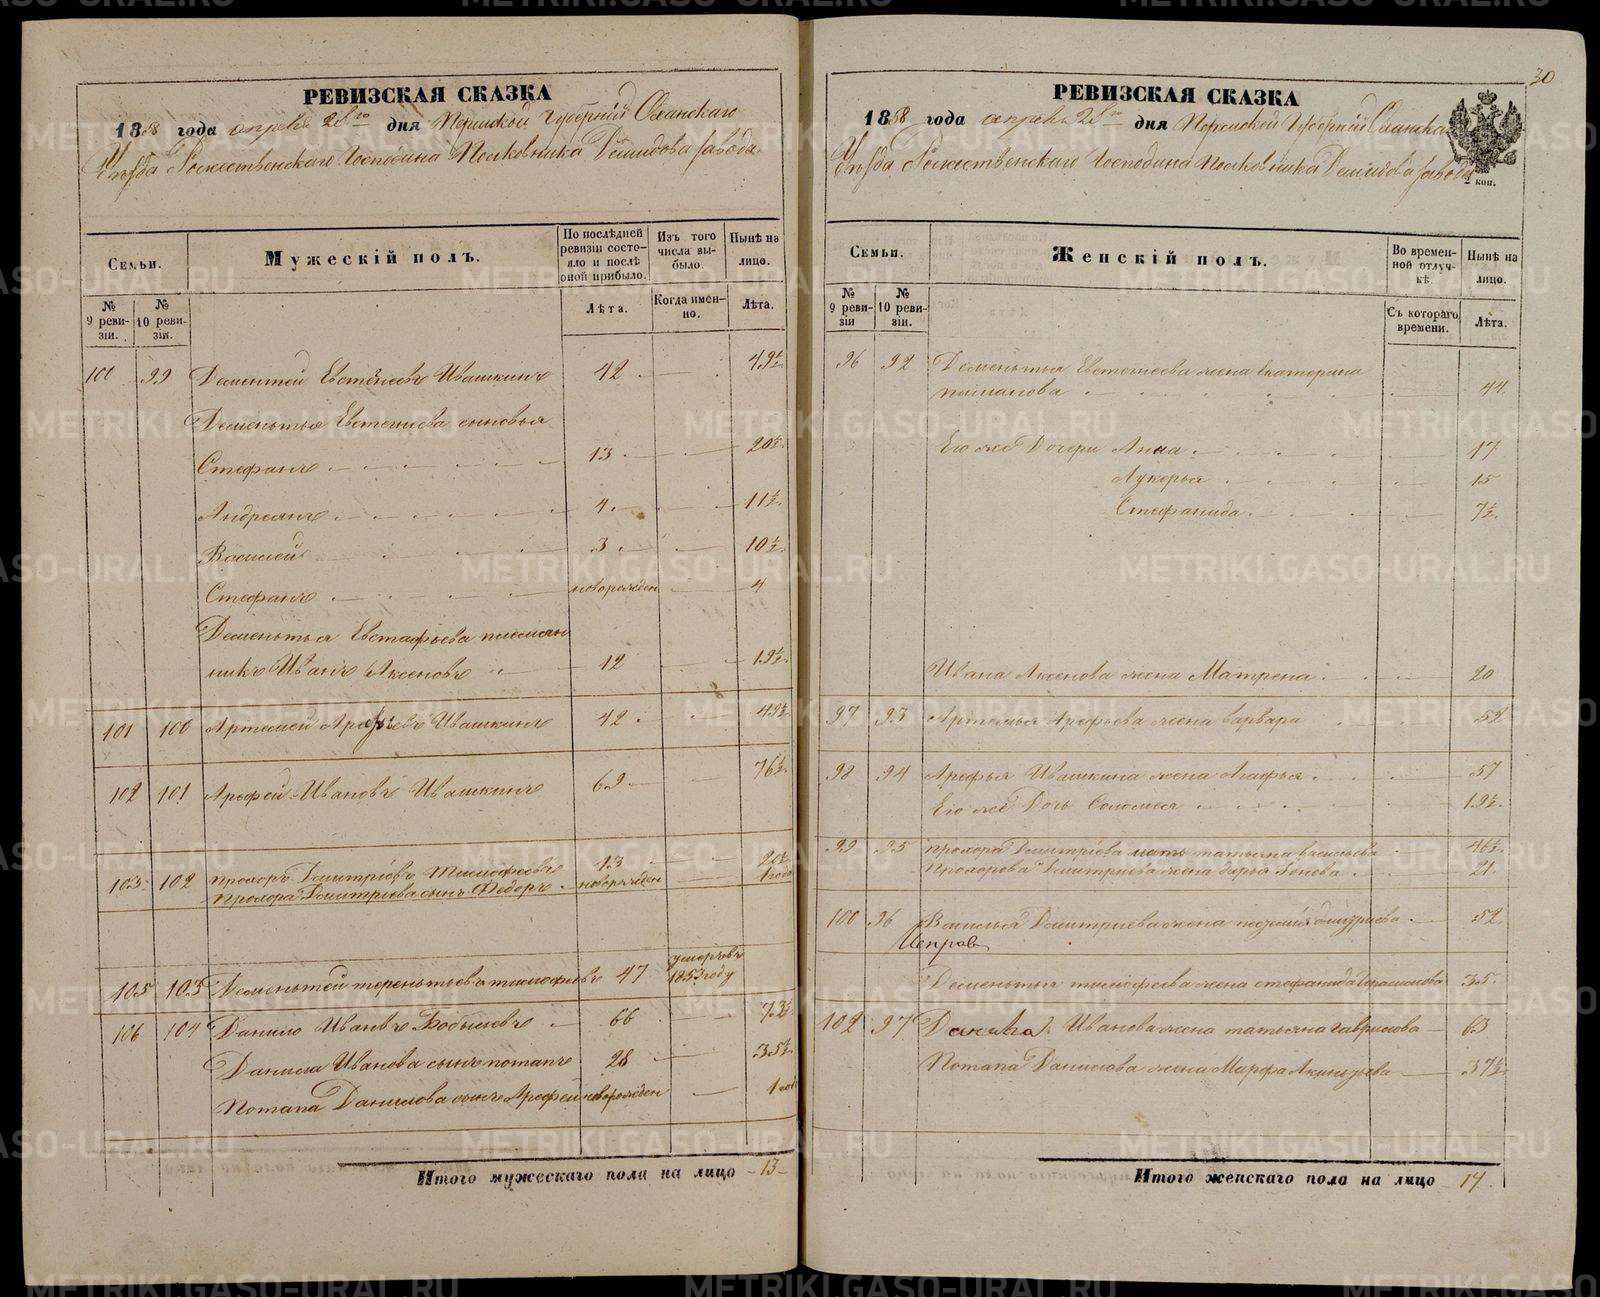 РЕВИЗСКАЯ СКАЗКА
1858 года апреля 28го дня Пермской Губернiи Оханскаго
Уѣзда Рожественскаго Господина Полковника Демидова завода.
Семьи.
Мужескiй полъ.
По послѣдней ревизiи состояло и послѣ оной прибыло.
Изъ того числа выбыло.
Нынѣ на лицо.
№ 9 ревизiи.
№ 10 ревизiи.
Лѣта.
Когда именно.
Лѣта.
100 99 Дементей Евстенеевъ Ивашкинъ 42 49½
Дементья Евстенеева сыновья
Стефанъ 13 20½
Андреянъ 4 11½
Василей 3 10½
Стефанъ новорожден 4
Дементья Евстафьева племян
никъ Иванъ Аксеновъ 12 19½
101 100 Артемей Арефьевъ Ивашкинъ 42 49½
102 101 Арефей Ивановъ Ивашкинъ 69 76½
103 102 Прохоръ Дмитрiевъ Тимофеевъ 13 20½
Прохора Дмитрiева сынъ Федоръ новорожден 1 годо
105 103 Дементей терентьевъ тимофеевъ 47 умеръ въ 1853 году
106 104 Данило Иванвъ Бобылевъ 66 73½
Данила Иванова сынъ потапъ 28 35½
Потапа Данилова сынъ Арефей новорожден 1 годо
Итого мужескаго пола на лицо 13
30
РЕВИЗСКАЯ СКАЗКА
1858 года апреля 28го дня Пермской Губернiи Оханскаго
Уѣзда Рожественскаго Господина Полковника Демидова завода
2 коп.
Семьи.
Женскiй полъ.
Во временной отлучкѣ.
Нынѣ на лицо.
№ 9 ревизiи
№ 10 ревизiи.
Съ котораго времени.
Лѣта.
96 92 Дементья Евстенеева жена екатерина
44
Его же Дочери Анна 17
Лукерья 15
Стефанида 7½
Ивана Аксенова жена Матрена 20
97 93 Артемья Арефьева жена варвара 52
98 94 Арефья Ивашкина жена Агафья 57
Его же Дочь Соломея 19½
99 95 Прохора Дмитрiева мать татьяна васильева 46½
Прохорова Дмитриева жена дарья 21
100 96 Василья Дмитриева жена дмитриева 52
Исправ
Дементья тимофеева жена стефанида 35
102 97 Данила Иванова жена татьяна гаврилова 63
Потапа Данилова жена Марфа 37½
Итого женскаго пола на лицо 14
METRIKI.GASO-URAL.RU